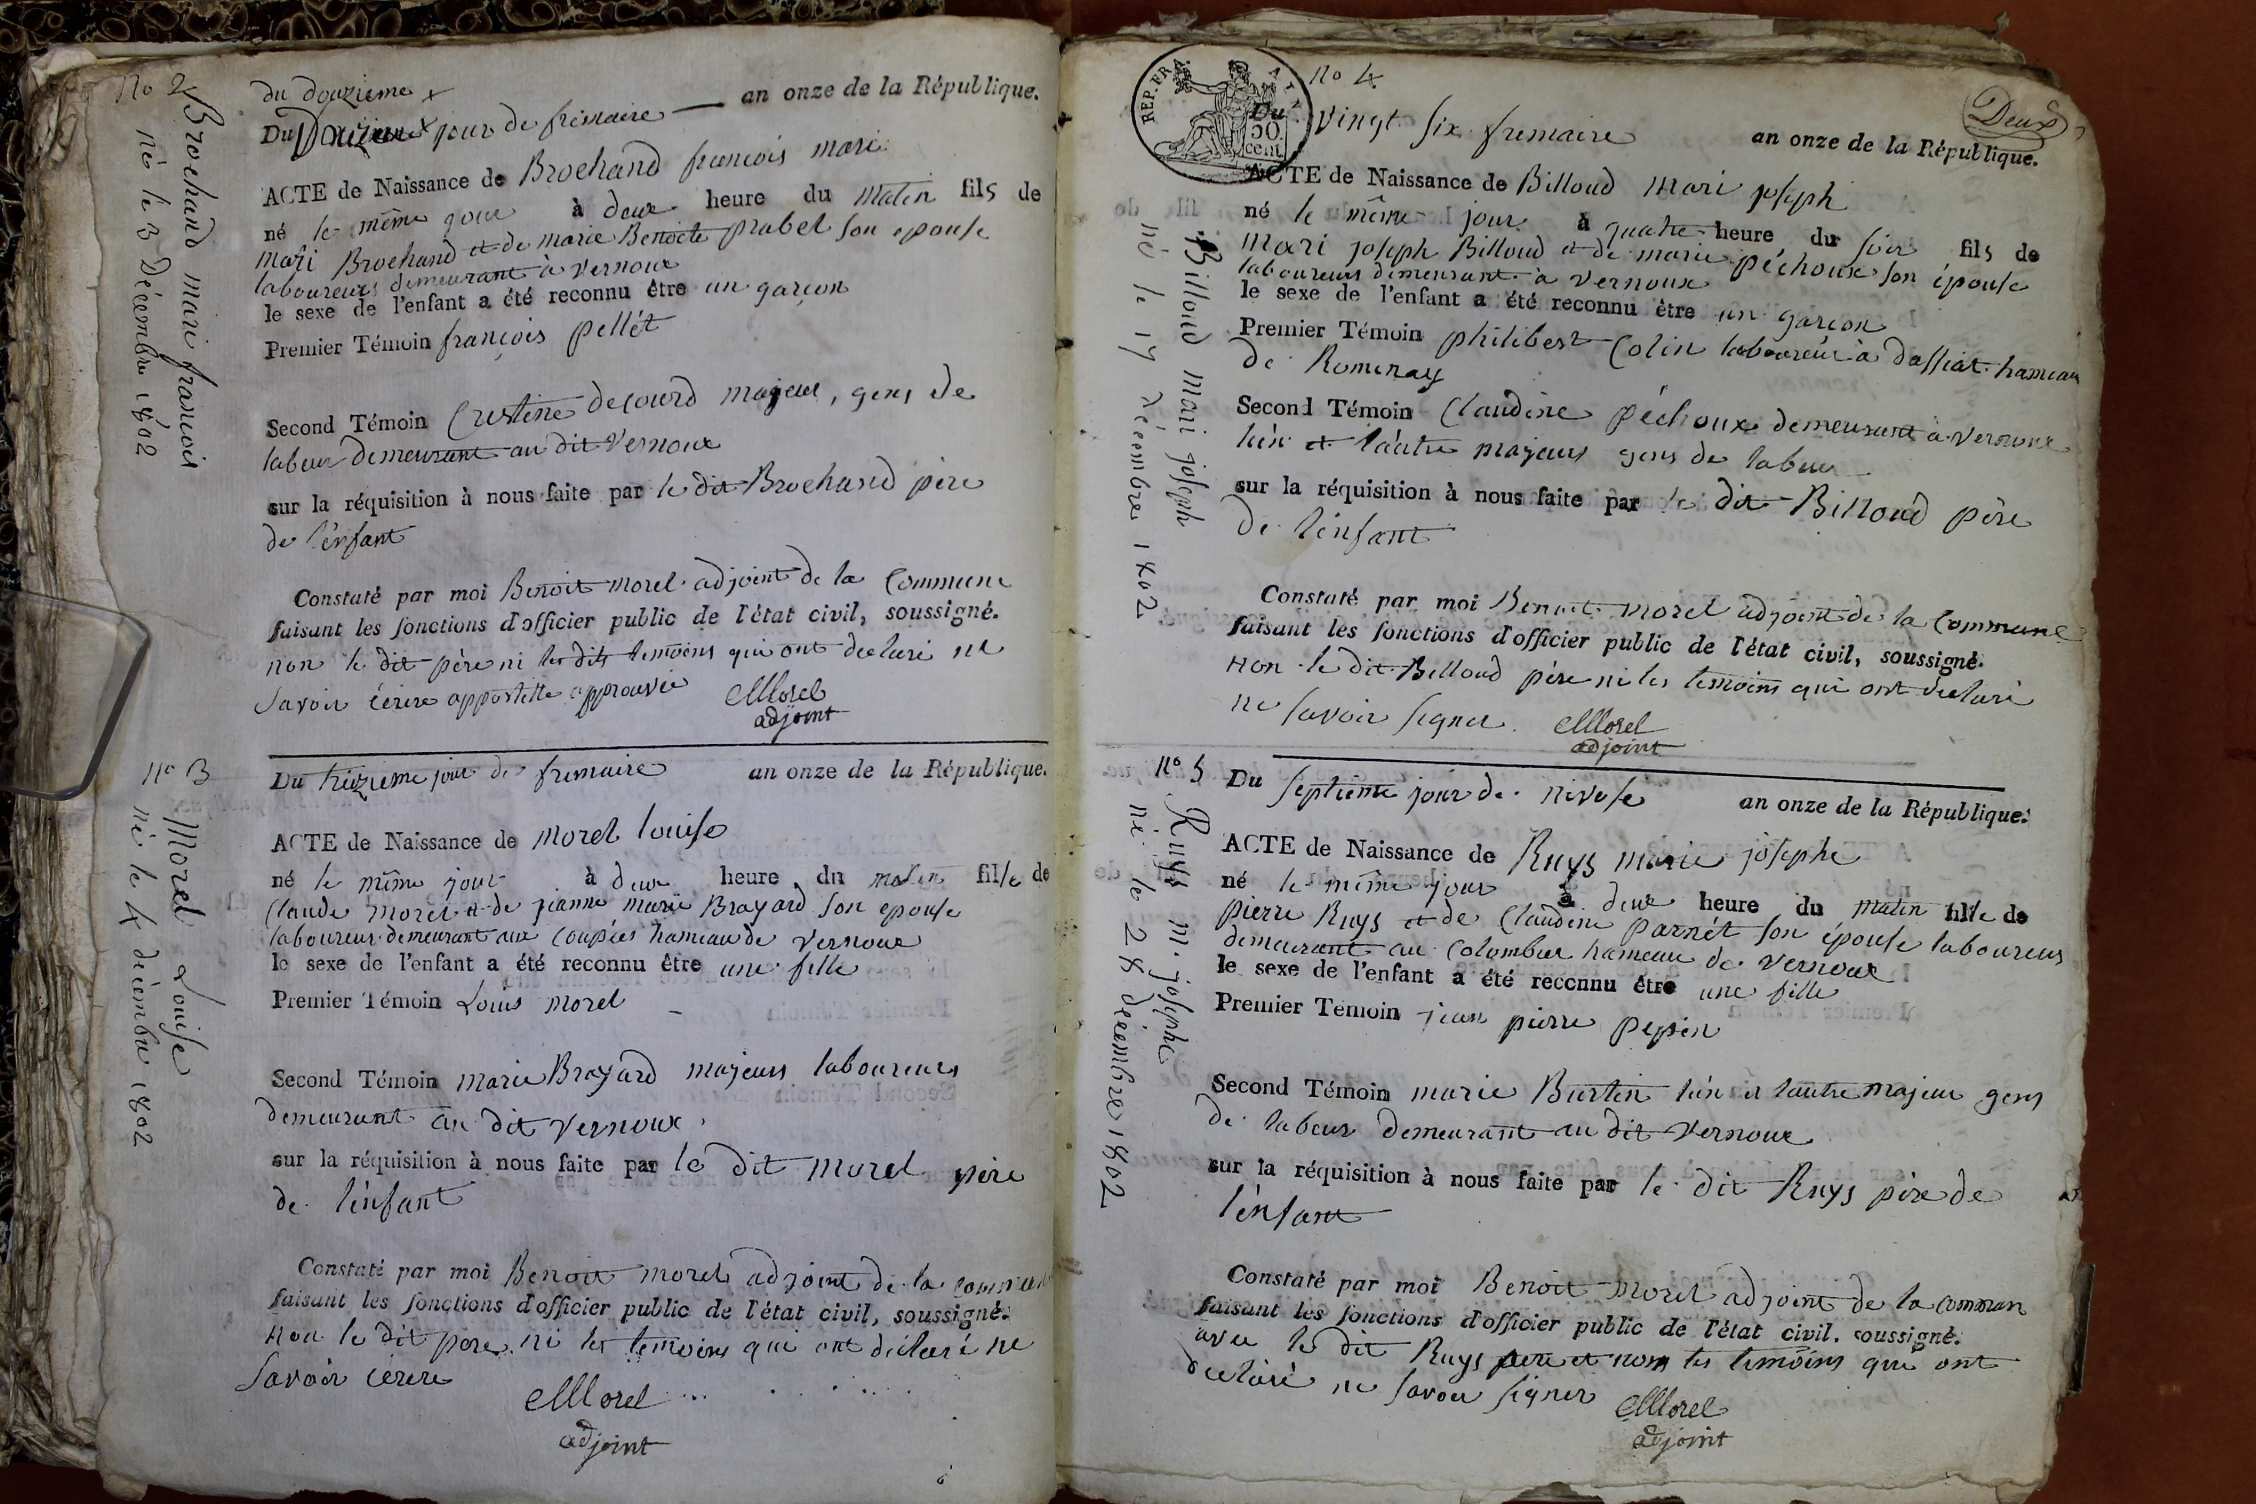 no 2
Brochand mari francois
né le 3 Décembre 1802
du douzieme x
Du x jour de frimaire an onze de la République.
ACTE de Naissance de Brochand francois mari
né le même jour à deux heure du matin fils de
mari Brochand et de marie Benoite prabel son epouse
laboureurs demeurant à vernoux
le sexe de l'enfant a été reconnu être un garçon
Premier Témoin françois pellét
Second Témoin decourd majeur, gens de
labeur demeurant au dit vernoux
sur la réquisition à nous faite par le dit Brochand père
de l'énfant
Constaté par moi Benoit morel adjoint de la Commune
faisant les fonctions d'officier public de l'état civil, soussigné.
non le dit père ni les dits temoins qui ont declaré ne
savoir écrire appostille approuvée
Morel
adjoint
no 3
Morel Louise
né le 4 décembre 1802
Du treizieme jour de frimaire an onze de la République.
ACTE de Naissance de morel louise
né le même jour à deux heure du matin fille de
Claude morel et de jeanne marie Brayard son epouse
laboureur demeurant aux coupées hameau de vernoux
le sexe de l'enfant a été reconnu être une fille
Premier Témoin Louis morel
Second Témoin marie Brayard majeurs laboureurs
demeurant au dit vernoux
sur la réquisition à nous faite par le dit morel père
de l'énfant
Constaté par moi Benoit morel adjoint de la commune
faisant les fonctions d'officier public de l'état civil, soussigné.
non le dit pere ni les temoins qui ont déclaré ne
savoir écrire
Morel
adjoint
REP. FRA.
50
cent
no 4
Deux
Billoud mari joseph
né le 17 décembre 1802
Du vingt six frimaire an onze de la République.
ACTE de Naissance de Billoud mari joseph
né le même jour à quatre heure du soir fils de
mari joseph Billoud et de marie péchoux son épouse
laboureurs demeurant à vernoux
le sexe de l'enfant a été reconnu être un garçon
Premier Témoin philibert Colin laboureur à dassiat hameau
de Romenay
Second Témoin Claudine péchoux demeurant à vernoux
lun et lautre majeurs gens de labeur
sur la réquisition à nous faite par le dit Billoud père
de l'énfant
Constaté par moi Benoit morel adjoint de la Commune
faisant les fonctions d'officier public de l'état civil, soussigné.
non le dit Billoud père ni les temoins qui ont declaré
ne savoir signer
Morel
adjoint
no 5
Ruys m. josephe
né le 28 décembre 1802
Du septieme jour de nivose an onze de la République.
ACTE de Naissance de Ruys marie josephe
né le même jour à deux heure du matin fille de
pierre Ruys et de Claudine parnét son épouse laboureurs
demeurant au colombier hameau de vernoux
le sexe de l'enfant a été reconnu être une fille
Premier Témoin jean pierre pepin
Second Témoin marie Burtin lun et lautre majeur gens
de labeur demeurant au dit vernoux
sur la réquisition à nous faite par le dit Ruys père de
l'énfant
Constaté par moi Benoit morel adjoint de la commun
faisant les fonctions d'officier public de l'état civil, soussigné.
avec le dit Ruys père et non les temoins qui ont
declaré ne savoir signer
Morel
adjoint